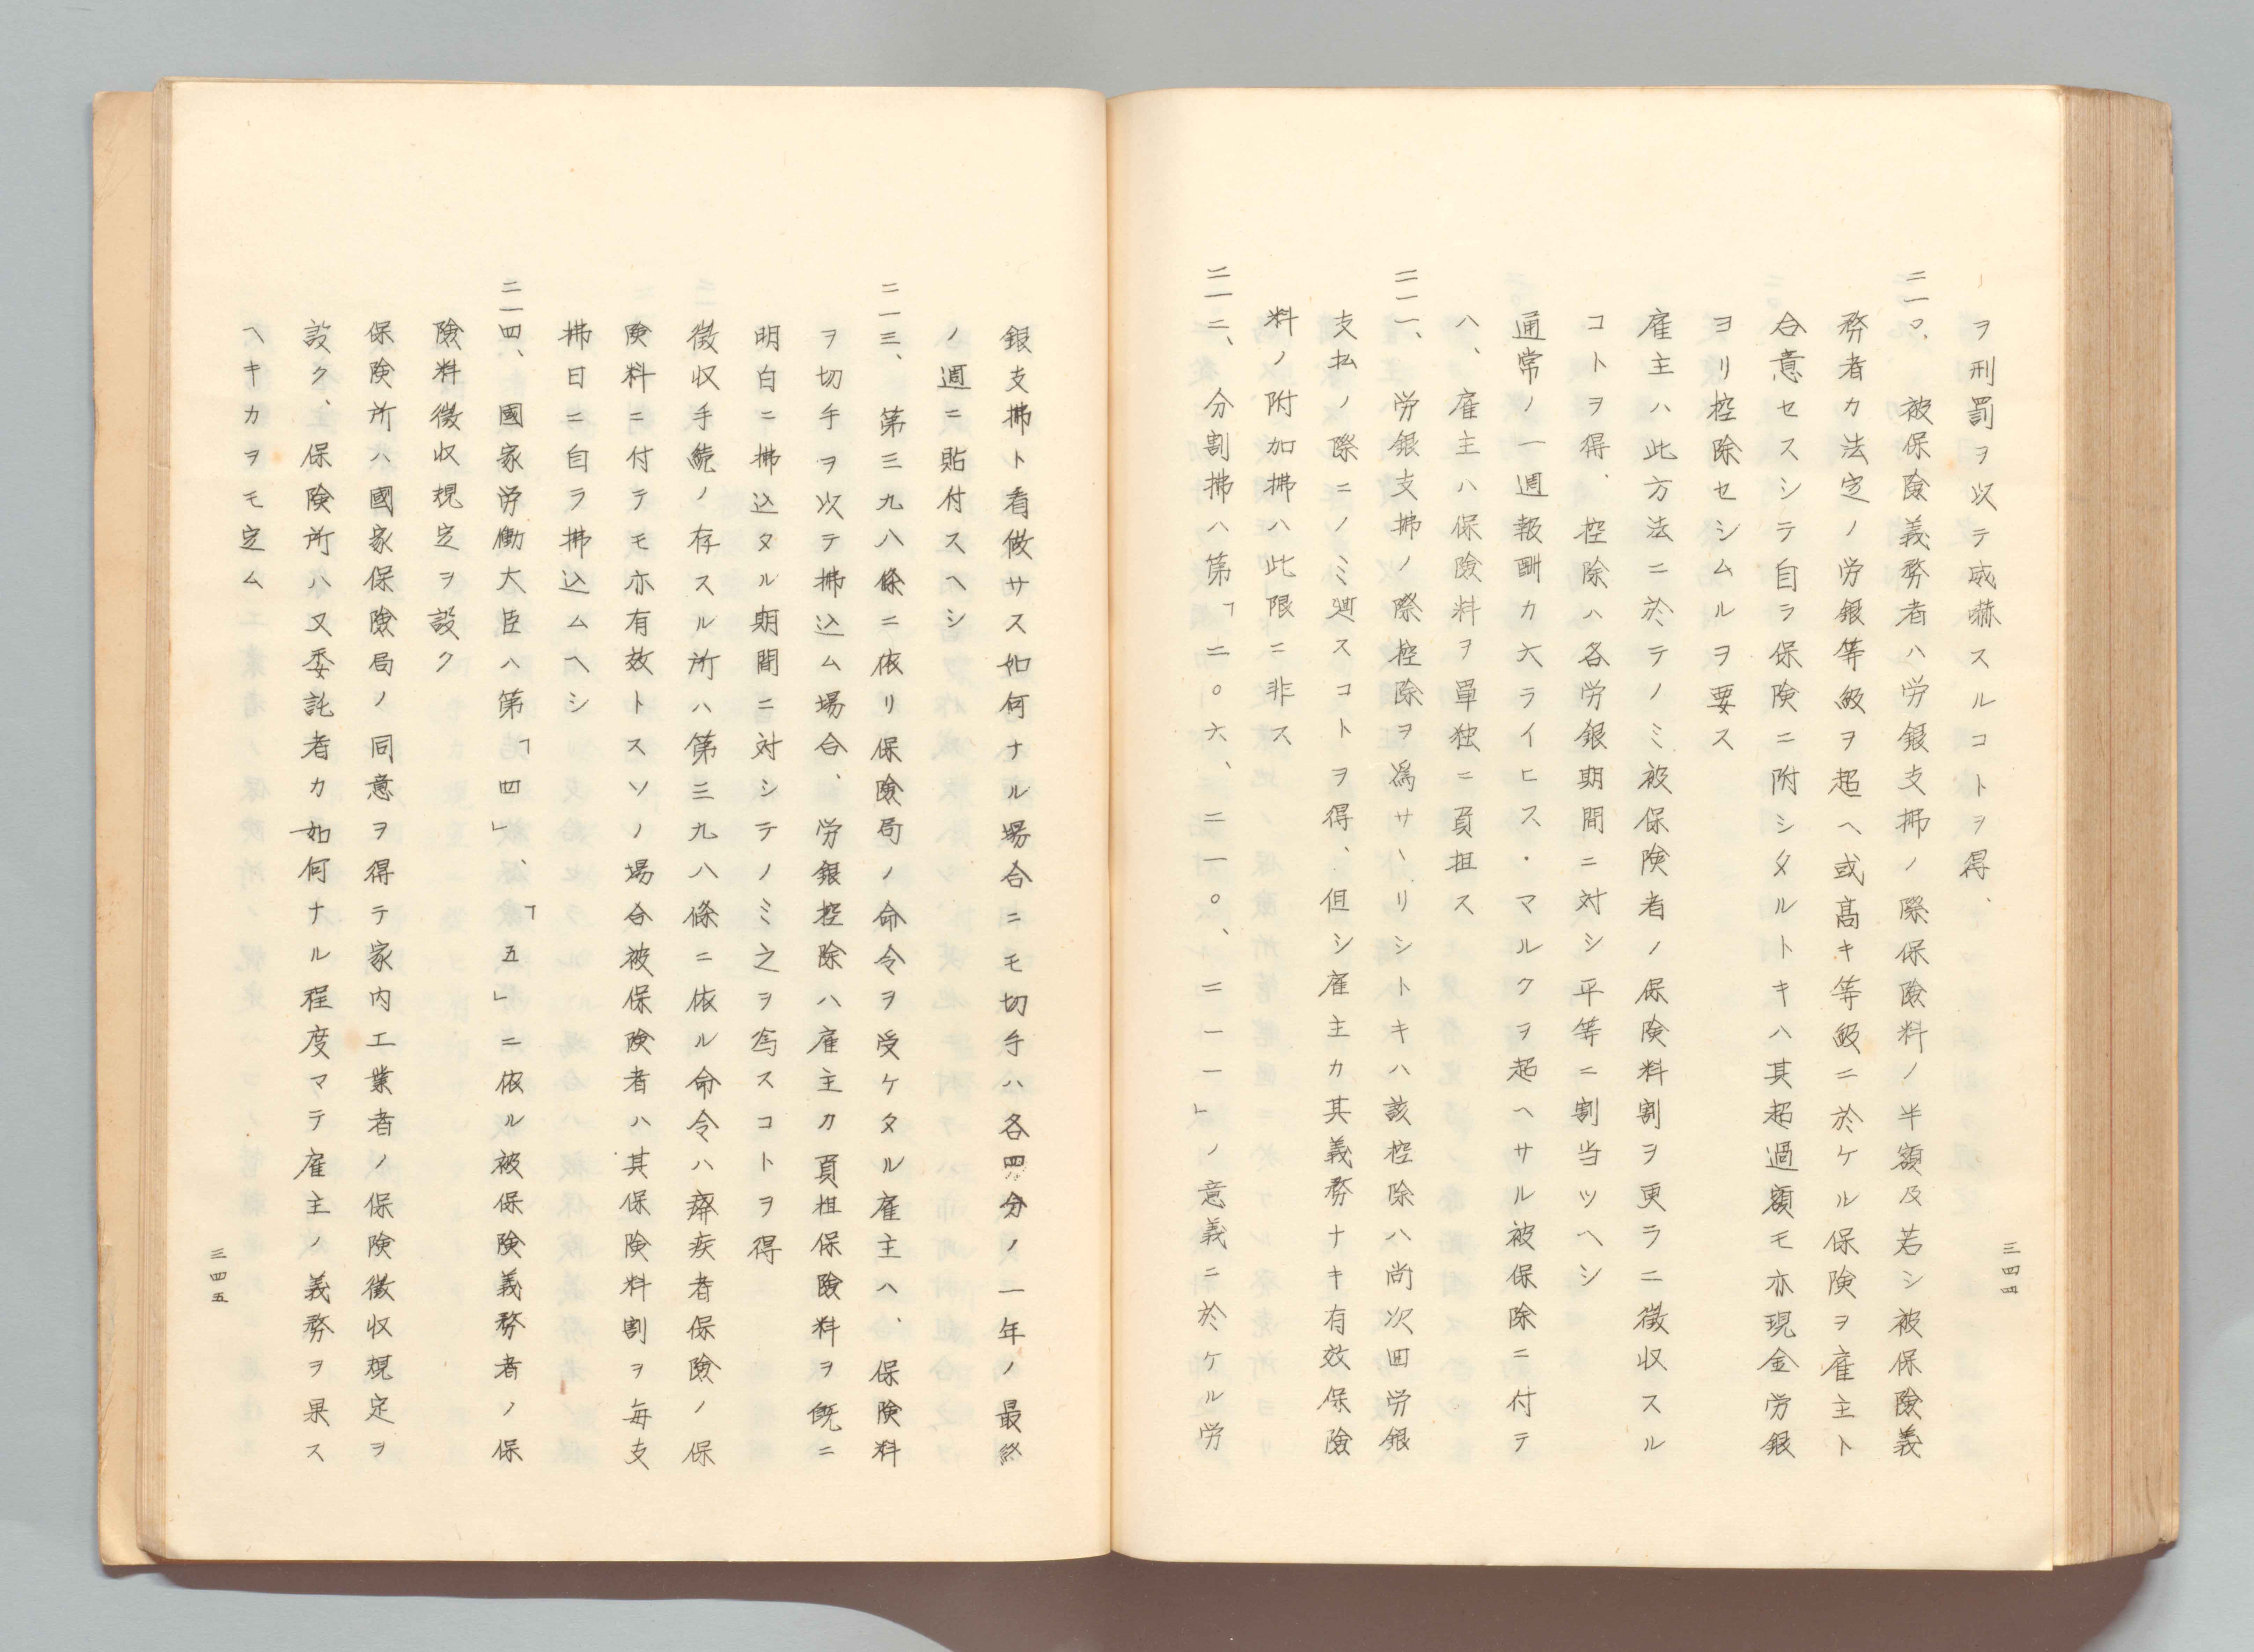 三四四
ヲ刑罰ヲ以テ威嚇スルコトヲ得、
二一〇、被保険義務者ハ労銀支拂ノ際保険料ノ半額及若シ被保険義
務者カ法定ノ労銀等級ヲ超ヘ或高キ等級ニ於ケル保険ヲ雇主ト
合意セスシテ自ラ保険ニ附シタルトキハ其超過額モ亦現金労銀
ヨリ控除セシムルヲ要ス
雇主ハ此方法ニ於テノミ被保険者ノ保険料割ヲ更ラニ徴収スル
コトヲ得、控除ハ各労銀期間ニ対シ平等ニ割当ツヘシ
通常ノ一週報酬カ六ライヒス・マルクヲ超ヘサル被保除ニ付テ
ハ、雇主ハ保険料ヲ單独ニ負担ス
二一一、労銀支拂ノ際控除ヲ為サヽリシトキハ該控除ハ尚次回労銀
支払ノ際ニノミ遡スコトヲ得、但シ雇主カ其義務ナキ有效保険
料ノ附加拂ハ此限ニ非ス
二一二、分割拂ハ第「二〇六、二一〇、二一一」ノ意義ニ於ケル労
銀支拂ト看做サス如何ナル場合ニモ切手ハ各四分ノ一年ノ最終
ノ週ニ貼付スヘシ
二一三、第三九八條ニ依リ保険局ノ命令ヲ受ケタル雇主ハ、保険料
ヲ切手ヲ以テ拂込ム場合、労銀控除ハ雇主カ負担保険料ヲ既ニ
明白ニ拂込タル期間ニ対シテノミ之ヲ為スコトヲ得
徴収手続ノ存スル所ハ第三九八條ニ依ル命令ハ癈疾者保険ノ保
険料ニ付テモ亦有效トスソノ場合被保険者ハ其保険料割ヲ毎支
拂日ニ自ラ拂込ムヘシ
二一四、國家労働大臣ハ第「四」、「五」ニ依ル被保険義務者ノ保
険料徴収規定ヲ設ク
保険所ハ國家保険局ノ同意ヲ得テ家内工業者ノ保険徴収規定ヲ
設ク、保険所ハ又委託者カ如何ナル程度マテ雇主ノ義務ヲ果ス
ヘキカヲモ定ム
三四五